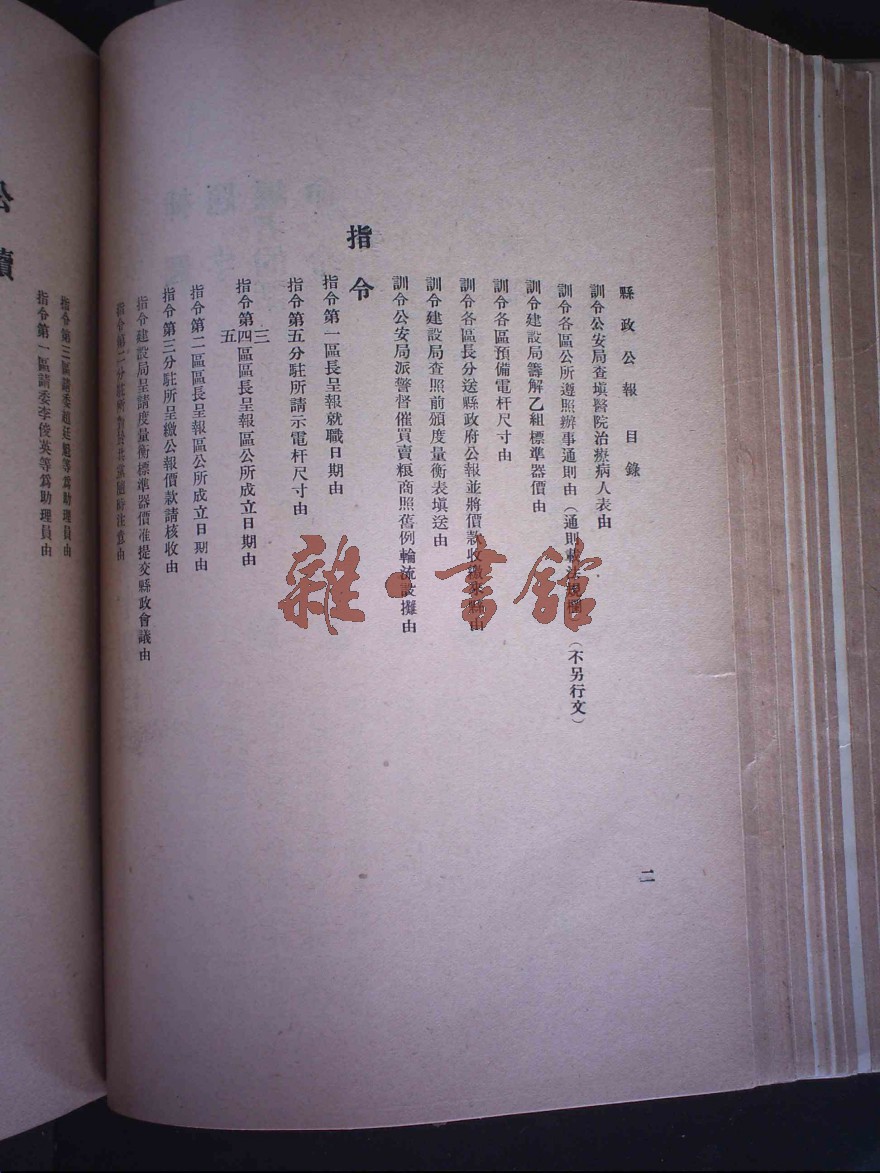 縣政公報 目錄
訓令公安局查塡醫院治療病人表由
訓令各區公所遵照辦事通則由（通則載法規欄）（不另行文）
訓令建設局籌解乙組標準器價由
訓令各區預備電杆尺寸由
訓令各區長分送縣政府公報並將價款收繳來縣由
訓令建設局查照前頒度量衡表塡送由
訓令公安局派警督催買賣糧商照舊例輪流設攤由
指令
指令第一區長呈報就職日期由
指令第五分駐所請示電杆尺寸由
指令第三四五區區長呈報區公所成立日期由
指令第二區區長呈報區公所成立日期由
指令第三分駐所呈繳公報價款請核收由
指令建設局呈請度量衡標準器價准提交縣政會議由
指令第二分駐所
注意由
二
指令第三區請委趙廷魁等爲助理員由
指令第一區請委李俊英等爲助理員由
公牘
雜·書館